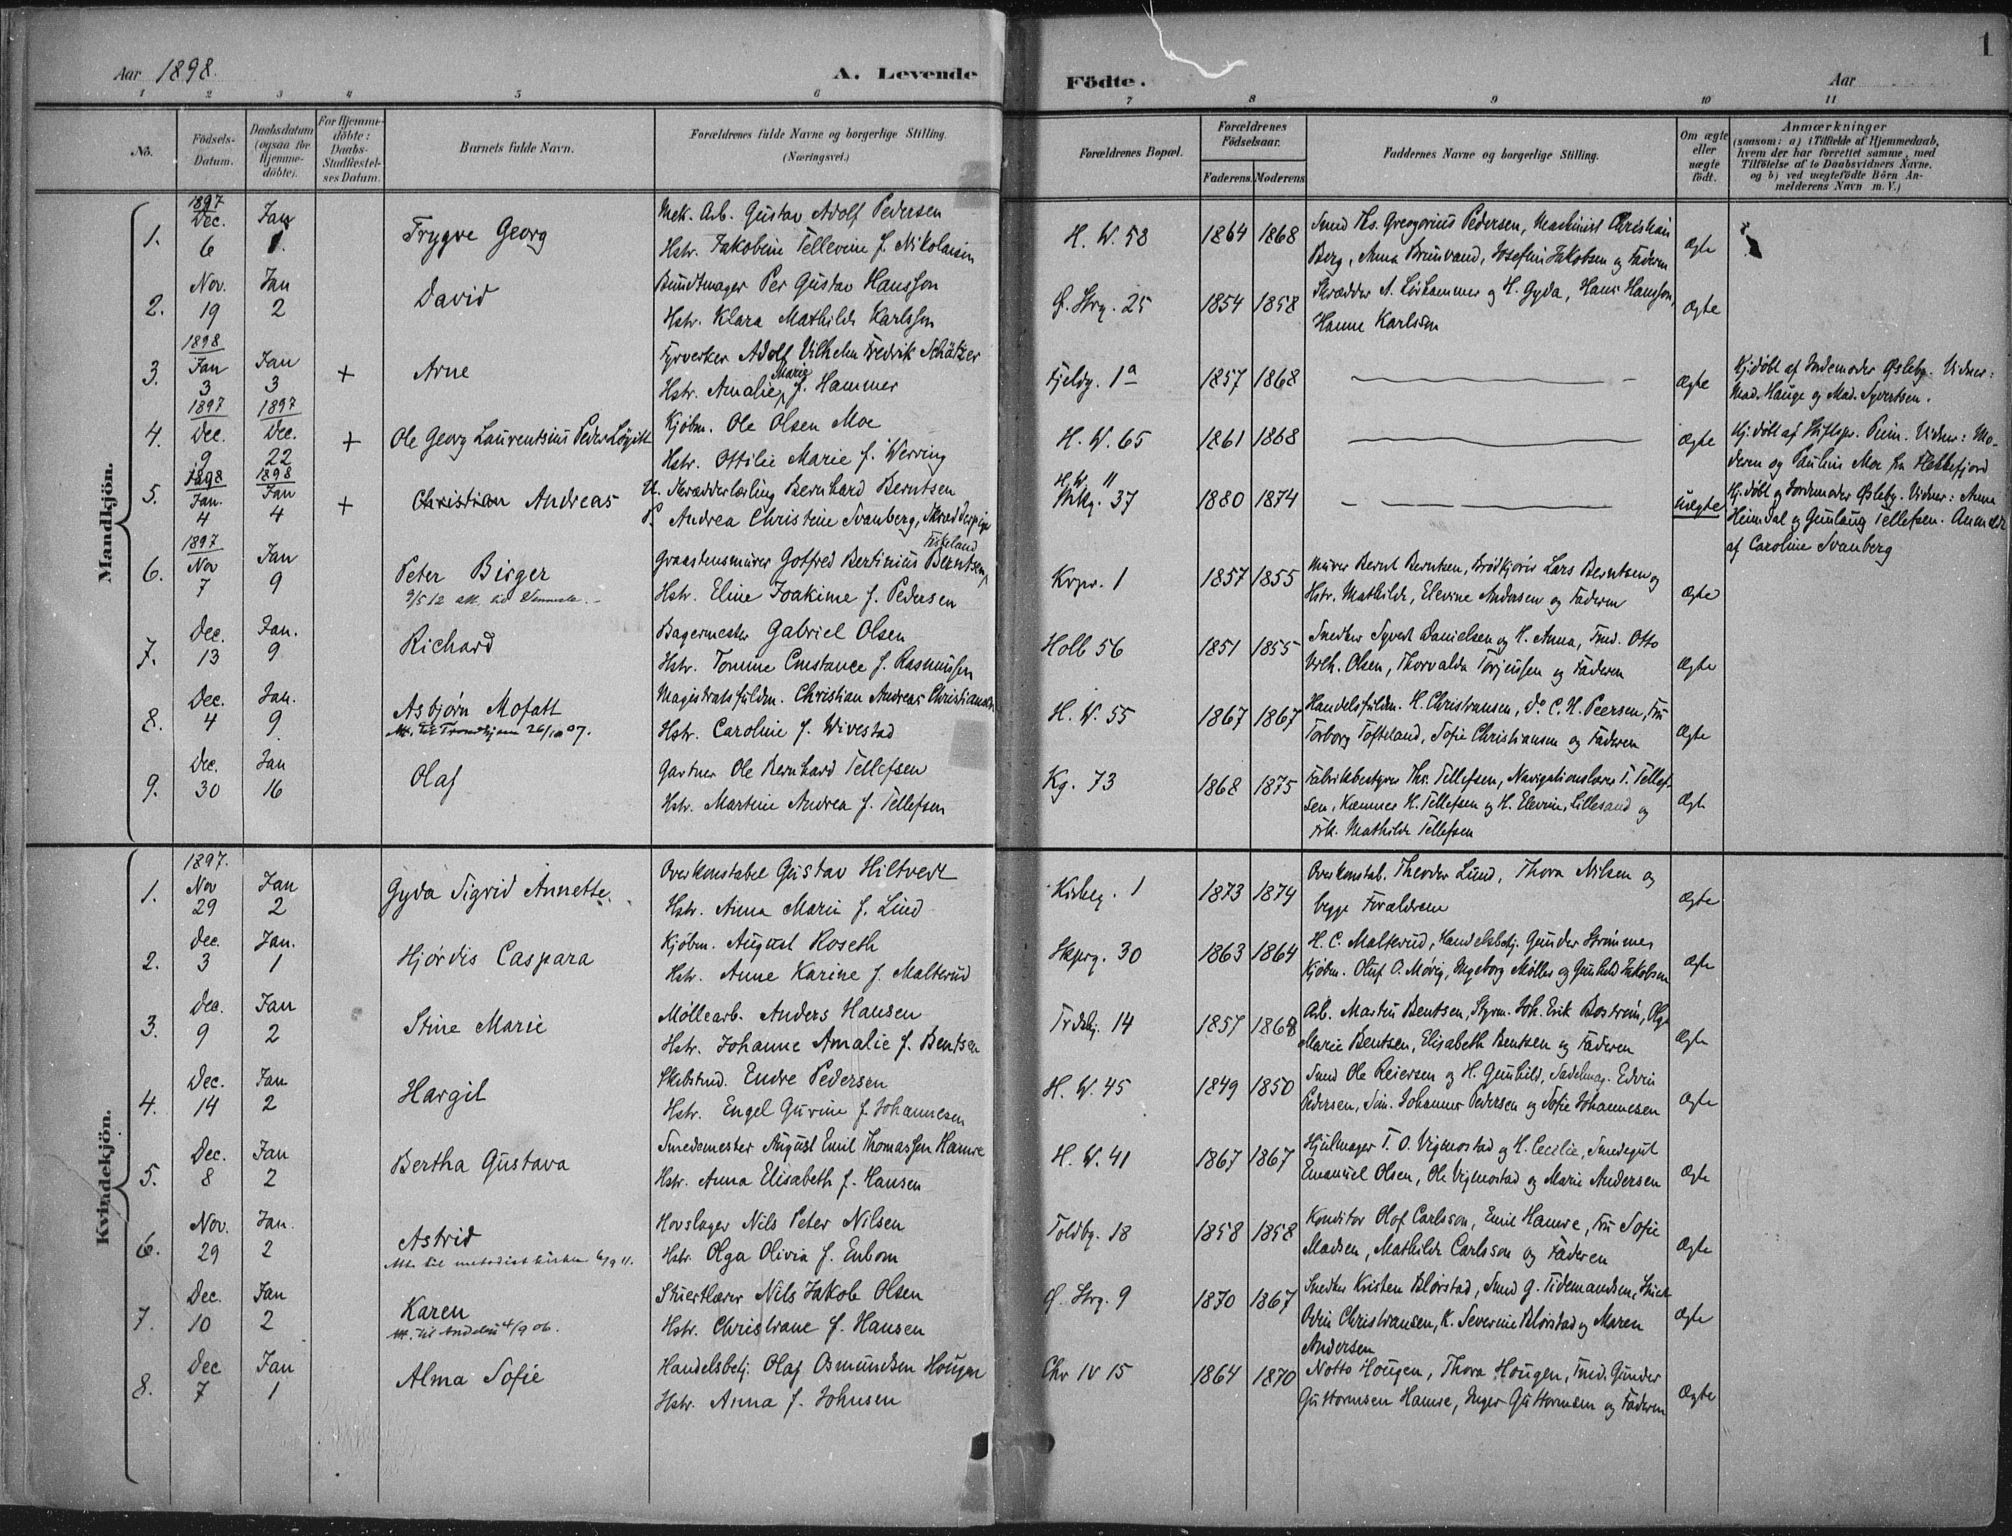 1
Aar 1898.
A. Levende Födte.
Aar
1 2 3 4 5 6 7 8 9 10 11
Nö.
Födsels-Datum.
Daabsdatum (ogsaa for Hjemmedöbte).
For Hjemmedöbte: Daabs-Stadfæstelses Datum.
Barnets fulde Navn.
Forældrenes fulde Navne og borgerlige Stilling. (Næringsvei.)
Forældrenes Bopæl.
Forældrenes Födselsaar.
Faderens. Moderens.
Faddernes Navne og borgerlige Stilling.
Om ægte eller uægte födt.
Anmærkninger
(saasom: a) i Tilfælde af Hjemmedaab, hvem der har forrettet samme, med Tilföielse af to Daabsvidners Navne, og b) ved uægtefödte Börn Anmelderens Navn m. V.)
Mandkjön.
1. 1897 Dec. 6 Jan 1. Trygve Georg
Mek. Arb. Gustav Adolf Pedersen
Hstr. Jakobine Tellevine f. Nikolaisen
H. W. 58 1864 1868
Smed Ths. Gregorius Pedersen, Maskinist Christian
Berg, Anna Brunvand, Josefine Jakobsen og Faderen
Ægte
2. Nov. 19 Jan 2 David
Bundtmager Per Gustav Hansson
Hstr. Klara Mathilde Karlsson
Ø. Strg. 25 1854 1858
Skrædder A. Löikammer og H. Gyda, Hans Hansson,
Hanne Karlsson
Ægte
3. 1898 Jan 3 Jan 3 + Arne
Fyrverker Adolf Vilhelm Fredrik Schätzer
Hstr. Amalie Marie f. Hammer
Fjeldg. 1a 1857 1868
Ægte
Hj.døbt af Jordemoder Øsleby. Vidner:
Mad. Hauge og Mad. Syvertsen.
4. 1897 Dec. 9 1897 Dec. 22 + Ole Georg Laurentsius Peder
Kjøbm. Ole Olsen Moe
Hstr. Ottilie Marie f. Werring
H. W. 65 1861 1868
Ægte
Hj.døbt af Stiftspr. Vidner: Mo-
deren og Pauline Moe fra Flekkefjord
5. 1898 Jan. 4 1898 Jan 4 + Christian Andreas
U. Skrædderlærling Bernhard Berntsen
P. Andrea Christine Svanberg,
H. W. 11
37 1880 1874
Uægte
Hj.døbt af Jordemoder Øsleby. Vidner: Anna
Heimdal og Gunlaug Tellefsen. Anmeldt
af Caroline Svanberg
6. 1897 Nov 7 Jan 9 Peter Birger
9/5 12 att. til Vennesla.
Graastensmurer Gotfred Bertinius Berntsen Fiskeland
Hstr. Eline Joakime f. Pedersen
Kvgv. 1 1857 1855
Murer Bernt Berntsen, Brödkjörer Lars Berntsen og
Hstr. Mathilde, Elevine Andersen og Faderen
Ægte
7. Dec. 13 Jan. 9 Richard
Bagermester Gabriel Olsen
Hstr. Tomine Constance f. Rasmussen
Holb 56 1851 1855
Snedker Syvert Danielsen og H. Anna, Otto
Vilh. Olsen, Thorvalda Torjensen og Faderen
Ægte
8. Dec. 4 Jan. 9 Asbjörn Mofatt
Att. til Trondhjem 26/10 07.
Magistratsfuldm. Christian Andreas Christiansen
Hstr. Caroline f. Wivestad
H. W. 55 1867 1867
Handelsfuldm. H. Christiansen, do C. H. Peersen, Fru
Torborg Tofteland, Sofie Christiansen og Faderen
Ægte
9. Dec. 30 Jan 16 Olaf
Gartner Ole Bernhard Tellefsen
Hstr. Martine Andrea f. Tellefsen
Kg. 73 1868 1875
Fabrikbestyrer Ths. Tellefsen, Navigationslærer T. Tellef-
sen, Kæmner H. Tellefsen og H. Elevine, Lillesand og
Frk. Mathilde Tellefsen
Ægte
Kvindekjön.
1. 1897. Nov 29 Jan 2 Gyda Sigrid Annette.
Overkonstabel Gustav Hiltvedt
Hstr. Anna Marie f. Lund
Kirkeg. 1 1873 1874
Overkonstab. Theodor Lund, Thora Nilsen og
begge Forældrene
Ægte
2. Dec. 3 Jan. 1 Hjördis Caspara
Kjøbm. August Roseth
Hstr. Anne Karine f. Malterud
Skprg. 30 1863 1864
H. C. Malterud, Handelsbetj. Gunder Strømmes
Kjöbm. Oluf O. Mövig, Ingeborg Møller og Gunhild Jakobsen
Ægte
3. Dec. 9 Jan 2 Stine Marie
Møllearb. Anders Hansen
Hstr. Johanne Amalie f. Bentsen
Trdskj. 14 1857 1868
Arb. Martin Bentsen, Styrm. Joh. Erik Boström, Olga
Marie Bentsen, Elisabeth Bentsen og Faderen
Ægte
4. Dec. 14 Jan 2 Hargil
Skibstmd. Endre Pedersen
Hstr. Engel Gurine f. Johannesen
H. W. 45 1849 1850
Smed Ole Reiersen og H. Gunhild, Sadelmag. Edvin
Pedersen, Söm. Johannes Pedersen og Sofie Johannesen
Ægte
5. Dec. 8 Jan 2 Bertha Gustava
Smedemester August Emil Thomassen Hamre
Hstr. Anna Elisabeth f. Hansen
H. W. 41 1867 1867
Hjulmager T. O. Vigmostad og H. Cecilie, Smedegut
Emanuel Olsen, Ole Vigmostad og Marie Andersen
Ægte
6. Nov. 29 Jan. 2 Astrid
Att. til metodistkirken 6/9 11.
Hovslager Nils Peter Nilsen
Hstr. Olga Olivia f. Enbom
Toldbg. 18 1858 1858
Konditor Olof Carlsson, Emil Hamre, Fru Sofie
Madsen, Mathilde Carlsson og Faderen
Ægte
7. Dec. 10 Jan 2 Karen
Att. til Andebu 4/9 06.
Skiertlærer Nils Jakob Olsen
Hstr. Christiane f. Hansen
Ø. Strg. 9 1870 1867
Snedker Kristen Blörstad, Smed G. Tidemandsen,
Odin Christiansen, K. Severine Blörstad og Maren
Andersen
Ægte
8. Dec 7 Jan 1 Alma Sofie
Handelsbetj. Olaf Osmundsen Hougen
Hstr. Anna f. Johnsen
Chr IV 15 1864 1870
Notto Hougen, Thora Hougen, Tmd. Gunder
Guttormsen Hamre, Inger Guttormsen og Faderen
Ægte